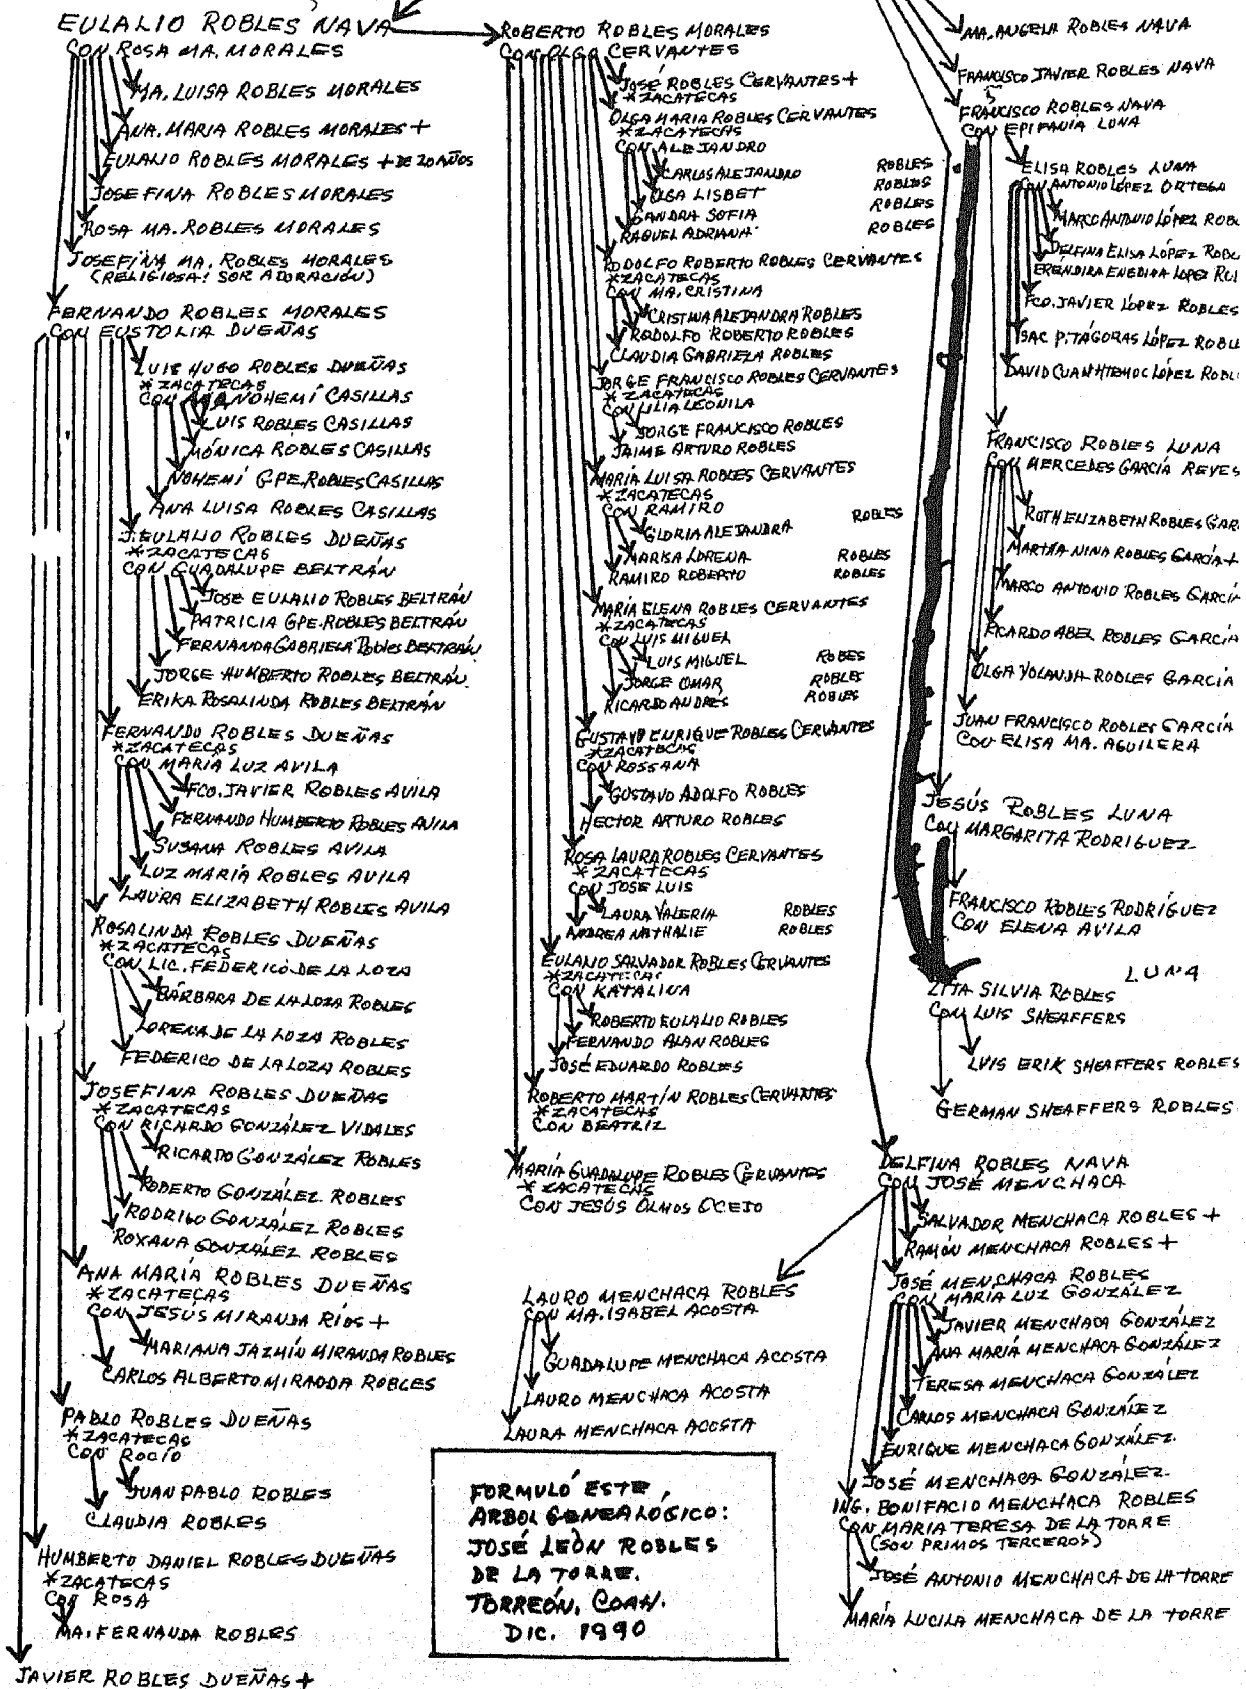 EULALIO ROBLES NAVA
CON ROSA MA. MORALES
MA. LUISA ROBLES MORALES
ANA. MARIA ROBLES MORALES +
EULALIO ROBLES MORALES + DE 20 AÑOS
JOSEFINA ROBLES MORALES
ROSA MA. ROBLES MORALES
JOSEFINA MA. ROBLES MORALES
(RELIGIOSA: SOR ADORACIÓN)
FERNANDO ROBLES MORALES
CON EUSTOLIA DUEÑAS
LUIS HUGO ROBLES DUEÑAS
*ZACATECAS
CON ANA NOHEMÍ CASILLAS
LUIS ROBLES CASILLAS
MÓNICA ROBLES CASILLAS
NOHEMÍ GPE. ROBLES CASILLAS
ANA LUISA ROBLES CASILLAS
J. EULALIO ROBLES DUEÑAS
*ZACATECAS
CON GUADALUPE BELTRÁN
JOSE EULALIO ROBLES BELTRÁN
PATRICIA GPE. ROBLES BELTRÁN
FERNANDA GABRIELA Robles BELTRÁN
JORGE HUMBERTO ROBLES BELTRÁN.
ERIKA ROSALINDA ROBLES BELTRÁN
FERNANDO ROBLES DUEÑAS
*ZACATECAS
CON MARIA LUZ AVILA
FCO. JAVIER ROBLES AVILA
FERNANDO HUMBERTO ROBLES AVILA
SUSANA ROBLES AVILA
LUZ MARÍA ROBLES AVILA
LAURA ELIZABETH ROBLES AVILA
ROSALINDA ROBLES DUEÑAS
*ZACATECAS
CON LIC. FEDERICO DE LA LOZA
BÁRBARA DE LA LOZA ROBLES
LORENA DE LA LOZA ROBLES
FEDERICO DE LA LOZA ROBLES
JOSEFINA ROBLES DUEÑAS
*ZACATECAS
CON RICARDO GONZÁLEZ VIDALES
RICARDO GONZÁLEZ ROBLES
ROBERTO GONZÁLEZ ROBLES
RODRIGO GONZÁLEZ ROBLES
ROXANA GONZÁLEZ ROBLES
ANA MARÍA ROBLES DUEÑAS
*ZACATECAS
CON JESÚS MIRANDA RÍOS +
MARIANA JAZMÍN MIRANDA ROBLES
CARLOS ALBERTO MIRANDA ROBLES
PABLO ROBLES DUEÑAS
*ZACATECAS
CON ROCÍO
JUAN PABLO ROBLES
CLAUDIA ROBLES
HUMBERTO DANIEL ROBLES DUEÑAS
*ZACATECAS
CON ROSA
MA. FERNANDA ROBLES
JAVIER ROBLES DUEÑAS +
ROBERTO ROBLES MORALES
CON OLGA CERVANTES
JOSÉ ROBLES CERVANTES +
*ZACATECAS
OLGA MARIA ROBLES CERVANTES
*ZACATECAS
CON ALEJANDRO
CARLOS ALEJANDRO ROBLES
OLGA LISBET ROBLES
SANDRA SOFIA ROBLES
RAQUEL ADRIANA ROBLES
RODOLFO ROBERTO ROBLES CERVANTES
*ZACATECAS
CON MA. CRISTINA
CRISTINA ALEJANDRA ROBLES
RODOLFO ROBERTO ROBLES
CLAUDIA GABRIELA ROBLES
JORGE FRANCISCO ROBLES CERVANTES
*ZACATECAS
CON LILIA LEONILA
JORGE FRANCISCO ROBLES
JAIME ARTURO ROBLES
MARÍA LUISA ROBLES CERVANTES
*ZACATECAS
CON RAMIRO
GLORIA ALEJANDRA ROBLES
MARISA LORENA ROBLES
RAMIRO ROBERTO ROBLES
MARÍA ELENA ROBLES CERVANTES
*ZACATECAS
CON LUIS MIGUEL
LUIS MIGUEL ROBES
JORGE OMAR ROBLES
RICARDO ANDRES ROBLES
GUSTAVO ENRIQUE ROBLES CERVANTES
*ZACATECAS
CON ROSSANA
GUSTAVO ADOLFO ROBLES
HECTOR ARTURO ROBLES
ROSA LAURA ROBLES CERVANTES
*ZACATECAS
CON JOSE LUIS
LAURA VALERIA ROBLES
ANDREA NATHALIE ROBLES
EULALIO SALVADOR ROBLES CERVANTES
*ZACATECAS
CON KATALINA
ROBERTO EULALIO ROBLES
FERNANDO ALAN ROBLES
JOSÉ EDUARDO ROBLES
ROBERTO MARTÍN ROBLES CERVANTES
*ZACATECAS
CON BEATRIZ
MARÍA GUADALUPE ROBLES CERVANTES
*ZACATECAS
CON JESÚS OLMOS OCEJO
LAURO MENCHACA ROBLES
CON MA. ISABEL ACOSTA
GUADALUPE MENCHACA ACOSTA
LAURO MENCHACA ACOSTA
LAURA MENCHACA ACOSTA
FORMULÓ ESTE
ARBOL GENEALÓGICO:
JOSÉ LEÓN ROBLES
DE LA TORRE.
TORREÓN, COAH.
DIC. 1990
MA. ANGELA ROBLES NAVA
FRANCISCO JAVIER ROBLES NAVA
FRANCISCO ROBLES NAVA
CON EPIFANÍA LUNA
ELISA ROBLES LUNA
CON ANTONIO LÓPEZ ORTEGA
MARCO ANTONIO LÓPEZ ROBL
DELFINA ELISA LÓPEZ ROBL
ERENDIRA LOPEZ
FCO. JAVIER LÓPEZ ROBLES
ISAC PITÁGORAS LÓPEZ ROBL
DAVID CUAUHTEMOC LÓPEZ ROBL
FRANCISCO ROBLES LUNA
CON MERCEDES GARCÍA REYES
RUTH ELIZABETH ROBLES GAR
MARTHA NINA ROBLES GARCÍA +
MARCO ANTONIO ROBLES GARCÍA
RICARDO ABEL ROBLES GARCÍA
OLGA YOLANDA ROBLES GARCIA
JUAN FRANCISCO ROBLES GARCÍA
CON ELISA MA. AGUILERA
JESÚS ROBLES LUNA
CON MARGARITA RODRIGUEZ
FRANCISCO ROBLES RODRÍGUEZ
CON ELENA AVILA
LUNA
ZITA SILVIA ROBLES
CON LUIS SHEAFFERS
LUIS ERIK SHEAFFERS ROBLES
GERMAN SHEAFFERS ROBLES
DELFINA ROBLES NAVA
CON JOSÉ MENCHACA
SALVADOR MENCHACA ROBLES +
RAMÓN MENCHACA ROBLES +
JOSÉ MENCHACA ROBLES
CON MARÍA LUZ GONZÁLEZ
JAVIER MENCHACA GONZÁLEZ
ANA MARÍA MENCHACA GONZÁLEZ
TERESA MENCHACA GONZÁLEZ
CARLOS MENCHACA GONZÁLEZ
ENRIQUE MENCHACA GONZÁLEZ.
JOSÉ MENCHACA GONZÁLEZ.
ING. BONIFACIO MENCHACA ROBLES
CON MARIA TERESA DE LA TORRE
(SON PRIMOS TERCEROS)
JOSÉ ANTONIO MENCHACA DE LA TORRE
MARÍA LUCILA MENCHACA DE LA TORRE